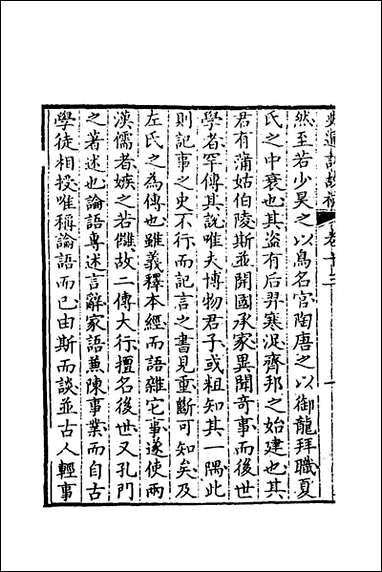 然至若少昊之以鳥名官陶唐之以御龍拜職夏
氏之中衰也其盜有后羿寒浞齊邦之始建也其
君有蒲姑伯陵斯並開國承家異聞奇事而後世
學者罕傳其說唯夫博物君子或粗知其一隅此
則記事之史不行而記言之書見重斷可知矣及
左氏之為傳也雖義釋本經而語雜它事遂使兩
漢儒者嫉之若讎故二傳大行擅名後世又孔門
之著述也論語專述言辭家語兼陳事業而自古
學徒相授唯稱論語而已由斯而談並古人輕事